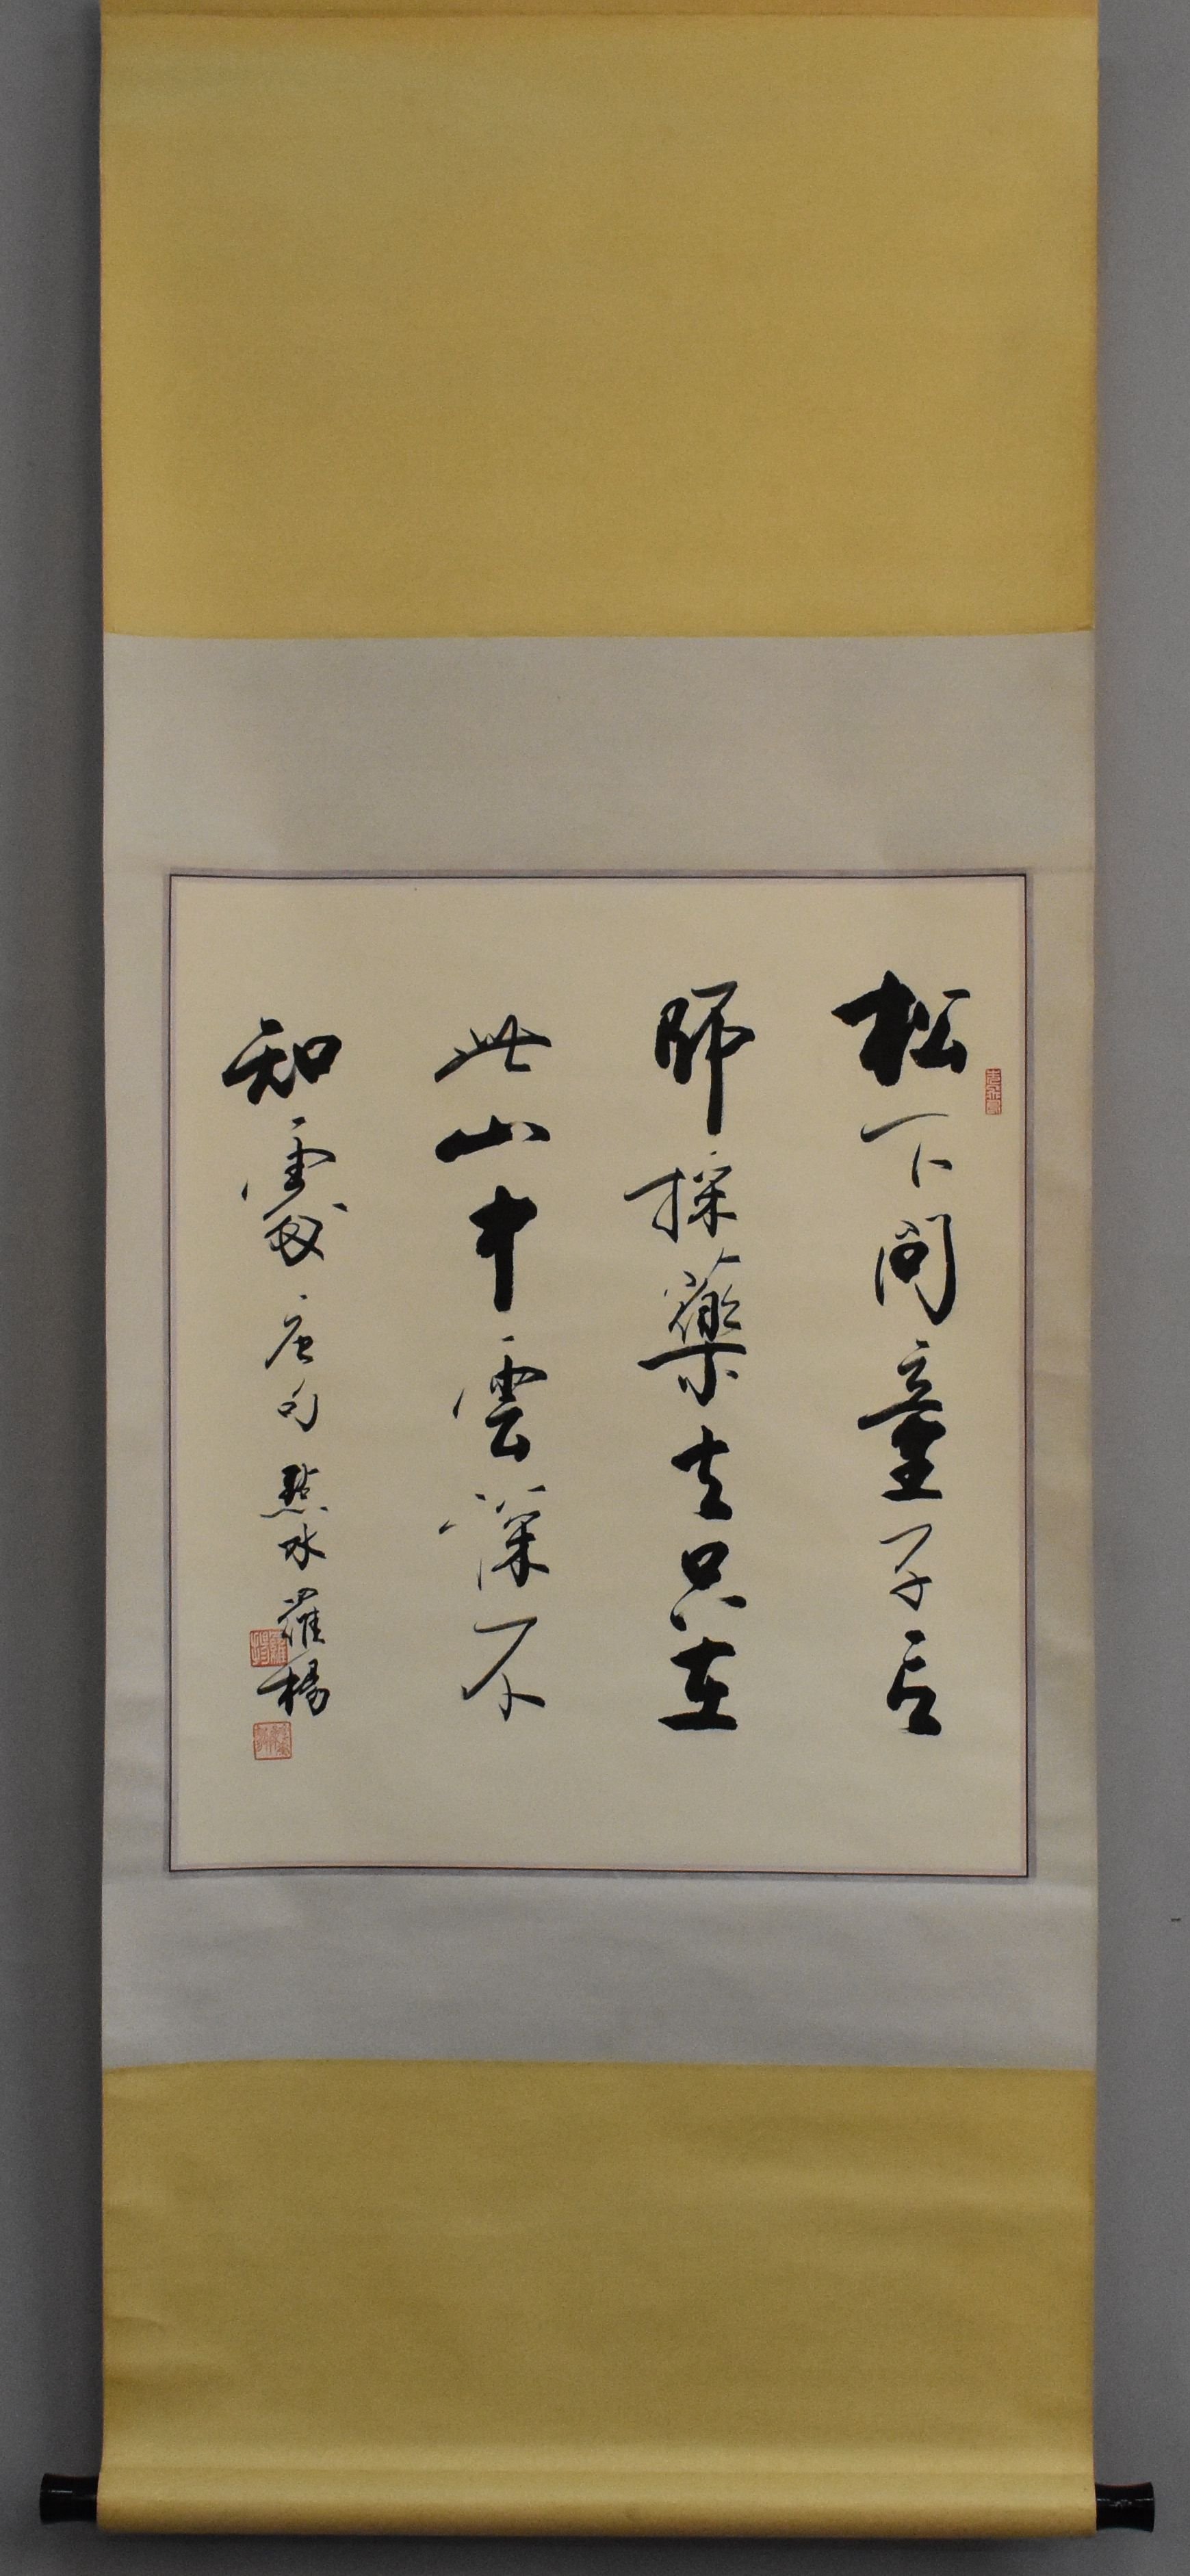 松下問童子言
師採藥去只在
此山中雲深不
知處 唐句 點水 羅楊